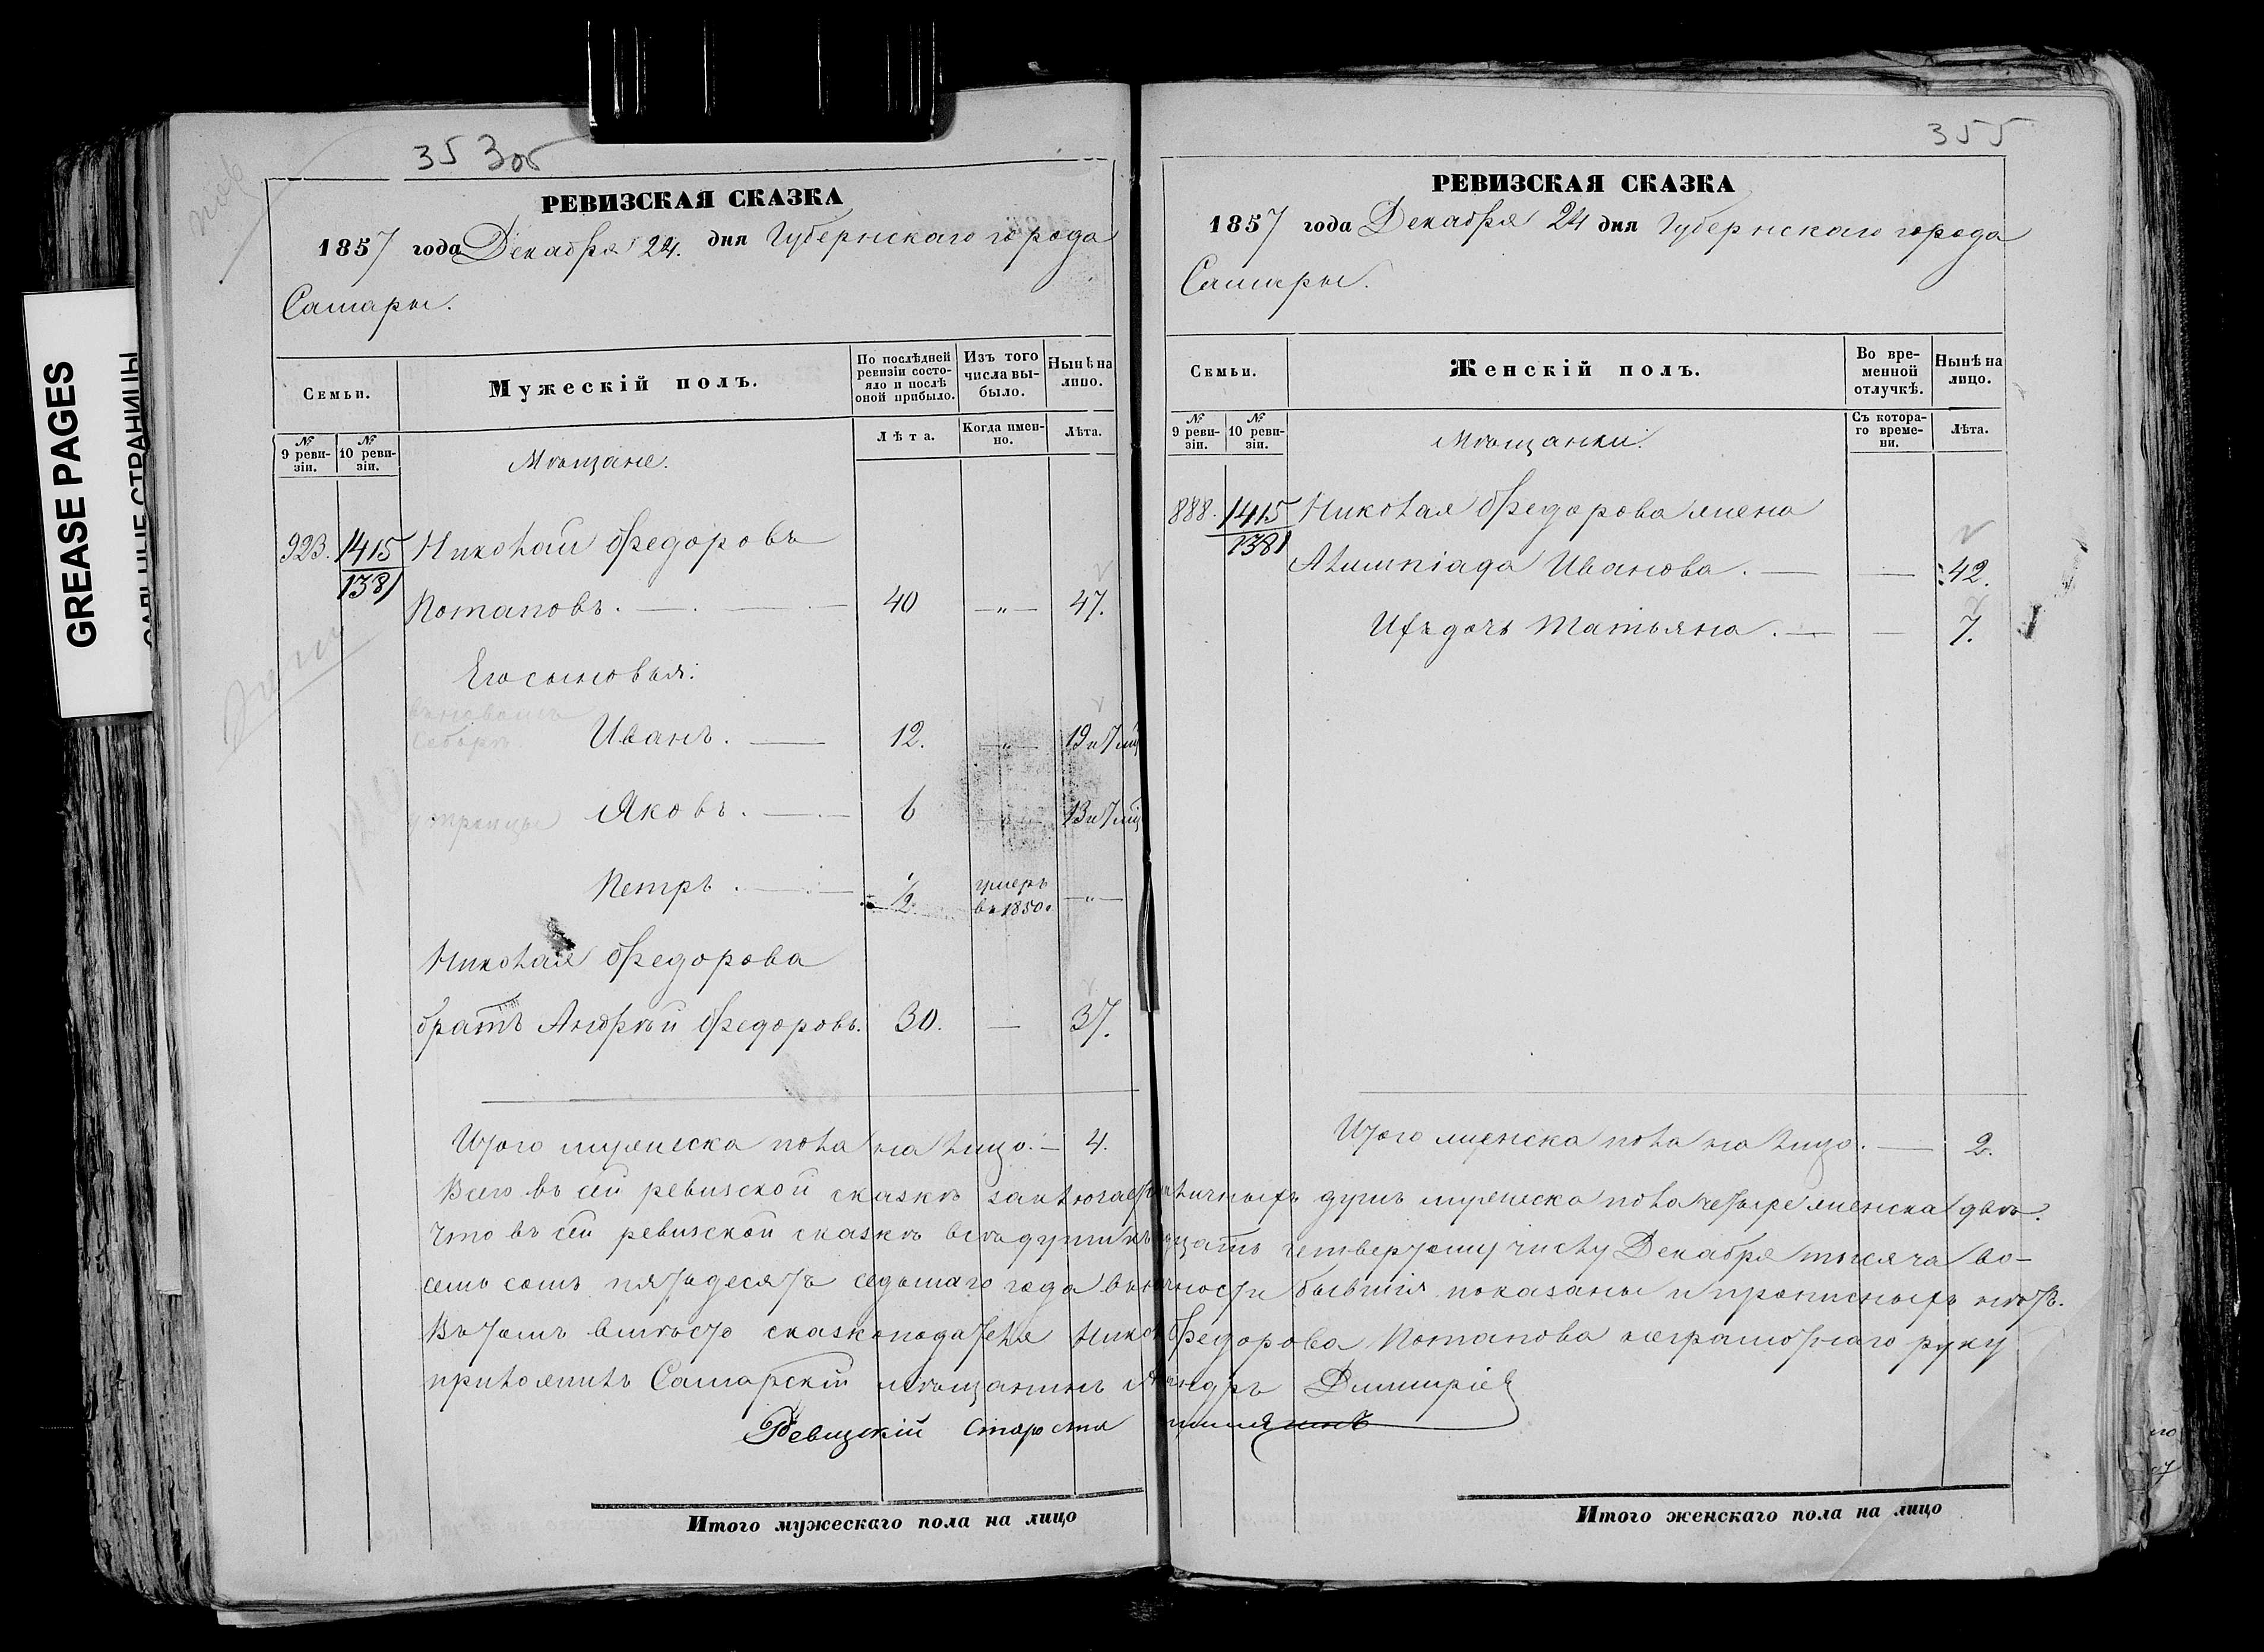 GREASE PAGES
САЛЬНЫЕ СТРАНИЦЫ
353об
РЕВИЗСКАЯ СКАЗКА
1857 года Декабря 24. дня Губернскаго города
Самары.
Семьи.
Мужескій полъ.
По послѣдней ревизіи состояло и послѣ оной прибыло.
Изъ того числа выбыло.
Нынѣ на лицо.
№ 9 ревизіи.
№ 10 ревизіи.
Мѣщане.
Лѣта.
Когда именно.
Лѣта.
923. 1415 Николай Федоровъ
1381 Потаповъ. 40 — „ — 47.
Его сыновья:
Иванъ. 12. — „ — 19 и 7 мѣ
Яковъ. 6 „ 13 и 7 мѣ
Петръ. 1/2 умеръ въ 1850 г — „ —
Николая Федорова
братъ Андрѣй Федоровъ. 30. — 37.
Итого мужеска пола на лицо. — 4.
355
РЕВИЗСКАЯ СКАЗКА
1857 года Декабря 24 дня Губернскаго города
Самары.
Семьи.
Женскій полъ.
Во временной отлучкѣ.
Нынѣ на лицо.
№ 9 ревизіи.
№ 10 ревизіи.
Мѣщанки.
Съ котораго времени.
Лѣта.
888. 1415 Николая Федорова жена
1381 Алимпіада Иванова. — — 42.
Ихъ дочь Татьяна. — — 7.
Итого женска пола на лицо. — 2.
Всего въ сей ревизской сказкѣ наличныхъ душъ мужеска пола четыре женска двѣ.
Что въ сей ревизской сказкѣ всѣ души четвертому числу Декабря тысяча во-
семь сотъ пятьдесятъ седьмаго года бывшія показаны и прописныхъ нѣтъ.
Въ томъ вмѣсто сказкоподателя Федорова Потапова неграмотнаго руку
приложилъ Самарскій мѣщанинъ Дмитріев
Ревизкій староста
Итого мужескаго пола на лицо
Итого женскаго пола на лицо